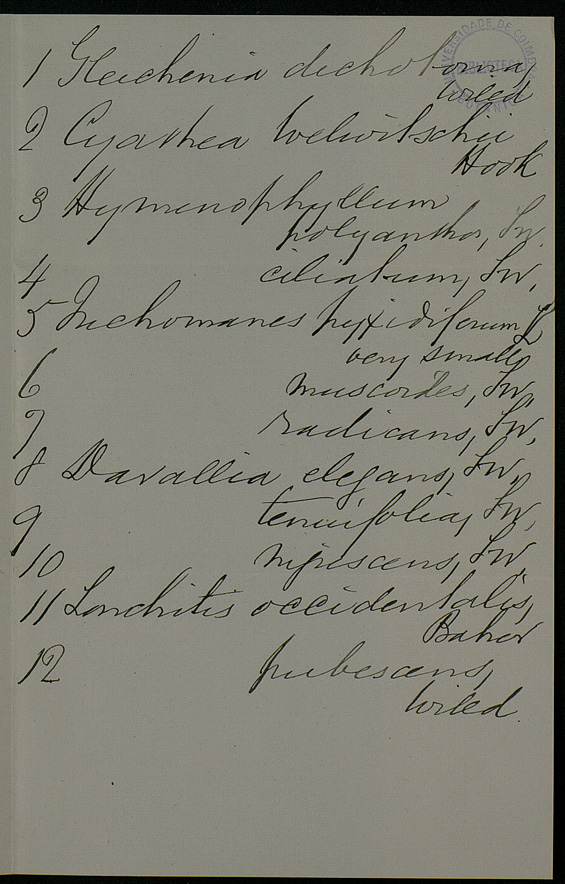 1 Gleichenia dichotoma,
Willd
2 Cyathea Welwitschii
Hook
3 Hymenophyllum
polyanthos, Sw.
4 ciliatum, Sw.
5 Trichomanes pyxidiferum, L
very small
6 muscoides, Sw.
7 radicans, Sw.
8 Davallia elegans, Sw.
9 tenuifolia, Sw.
10 nigrescens,
11 Lonchitis occidentalis,
Baker
12 pubescens,
Willd.